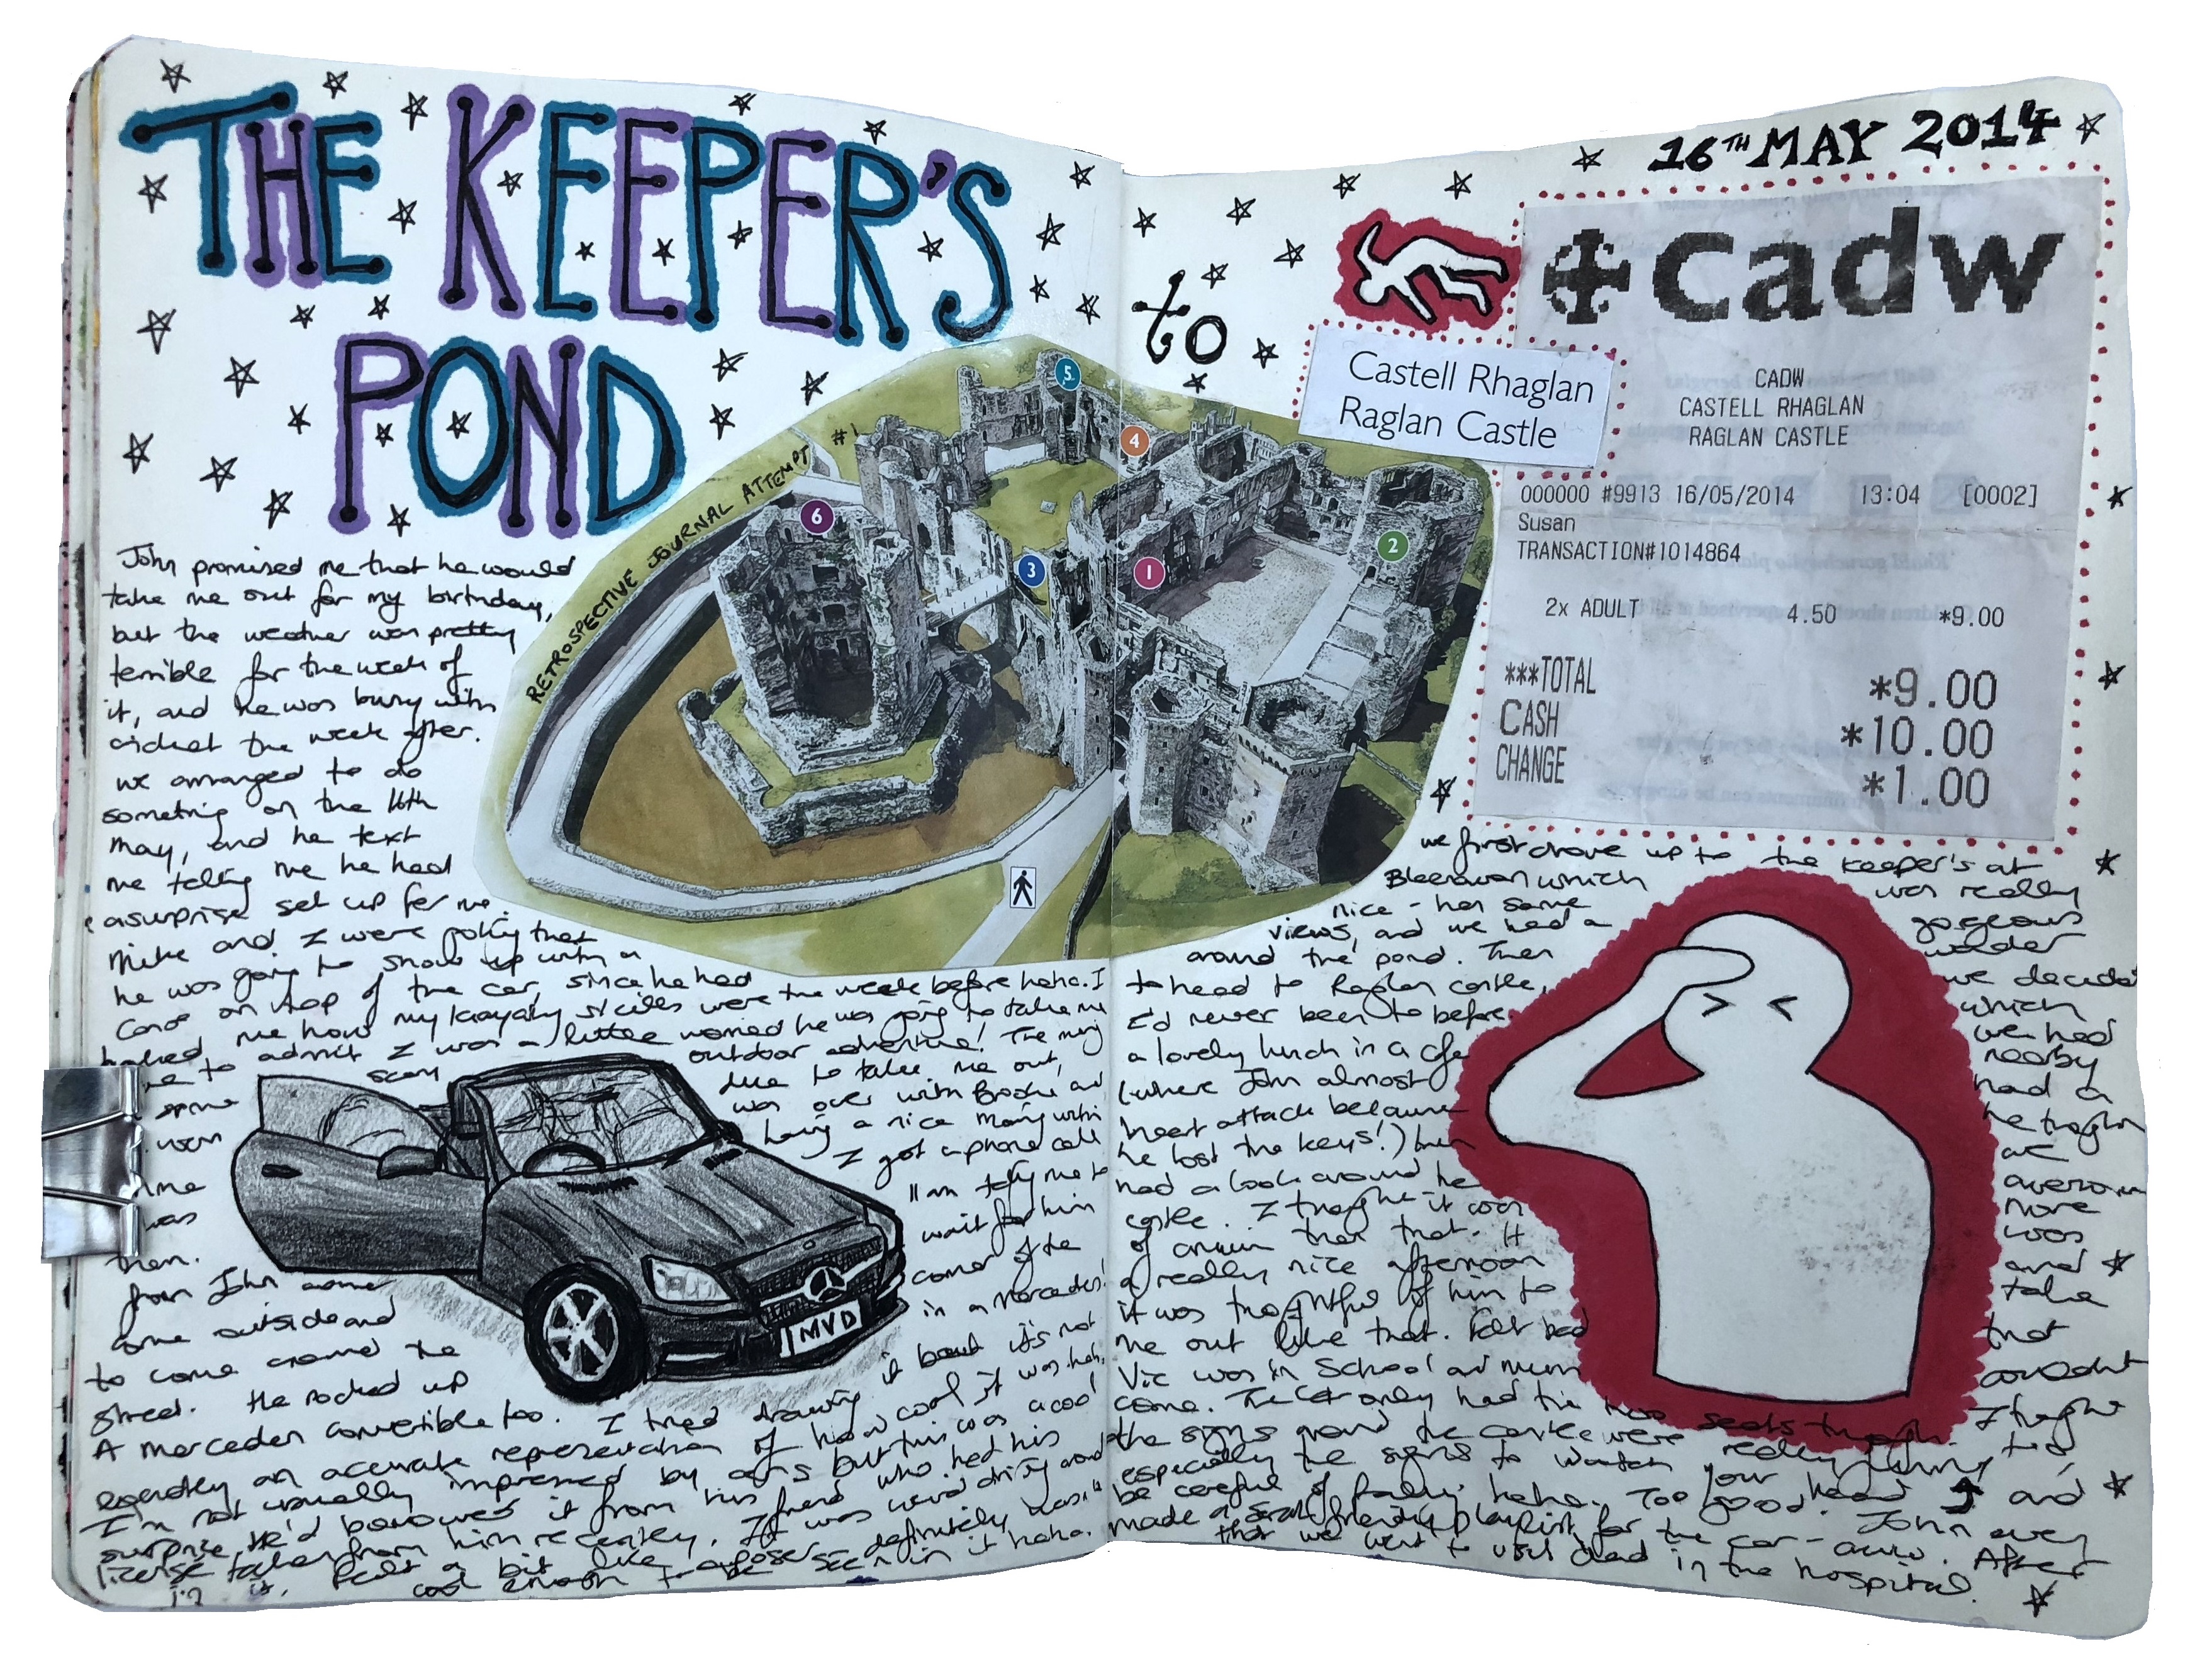 THE KEEPER'S
POND
to
16TH MAY 2014
cadw
CADW
CASTELL RHAGLAN
RAGLAN CASTLE
000000 #9913 16/05/2014 13:04 [0002]
Susan
TRANSACTION#1014864
2x ADULT 4.50 *9.00
***TOTAL *9.00
CASH *10.00
CHANGE *1.00
Castell Rhaglan
Raglan Castle
RETROSPECTIVE JOURNAL ATTEMPT #1
5
4
6
3
1
2
John promised me that he would
take me out for my birthday,
but the weather was pretty
terrible for the week of
it, and he was busy with
cricket the week after.
we arranged to do
something on the 16th
May, and he text
me telling me he had
a surprise set up for me.
Mike and I were joking that
he was going to show up with a
canoe on top of the car, since he had
me how my kayaking skills were the week before haha. I
to admit I was a little worried he was going to take me
scary outdoor adventure! The
due to take me out,
was over with Brooke and
having a nice
I got a phone call
them.
from John
telling me to
come outside and wait for him
to come around the corner of the
street. He rocked up in a Mercedes!
A Mercedes convertible too. I tried drawing it but it's not
exactly an accurate representation of how cool it was haha.
I'm not usually impressed by cars but this was a cool
surprise. He'd borrowed it from his friend who had his
license taken from him recently. It was weird driving around
in it, felt a bit like a poser - definitely wasn't
cool enough to be seen in it haha.
MVD
we first drove up to the Keeper's at
which was really
nice - has some gorgeous
views, and we had a
around the pond. Then we decided
to head to Raglan castle, which
I'd never been to before. we had
a lovely lunch in a cafe nearby
(where John almost had a
heart attack because he thought
he lost the keys!) then we
had a look around the
castle. I thought it was
more
than that. It was
a really nice afternoon and
it was thoughtful of him to take
me out like that. Felt bad that
Vic was in school and mum couldn't
come. The car only had the two seats though. I thought
the signs around the castle were really funny too,
especially the signs to watch your head and
be careful of falling haha. Too good. John even
made a playlist for the car - aww. After
that we went to visit dad in the hospital.